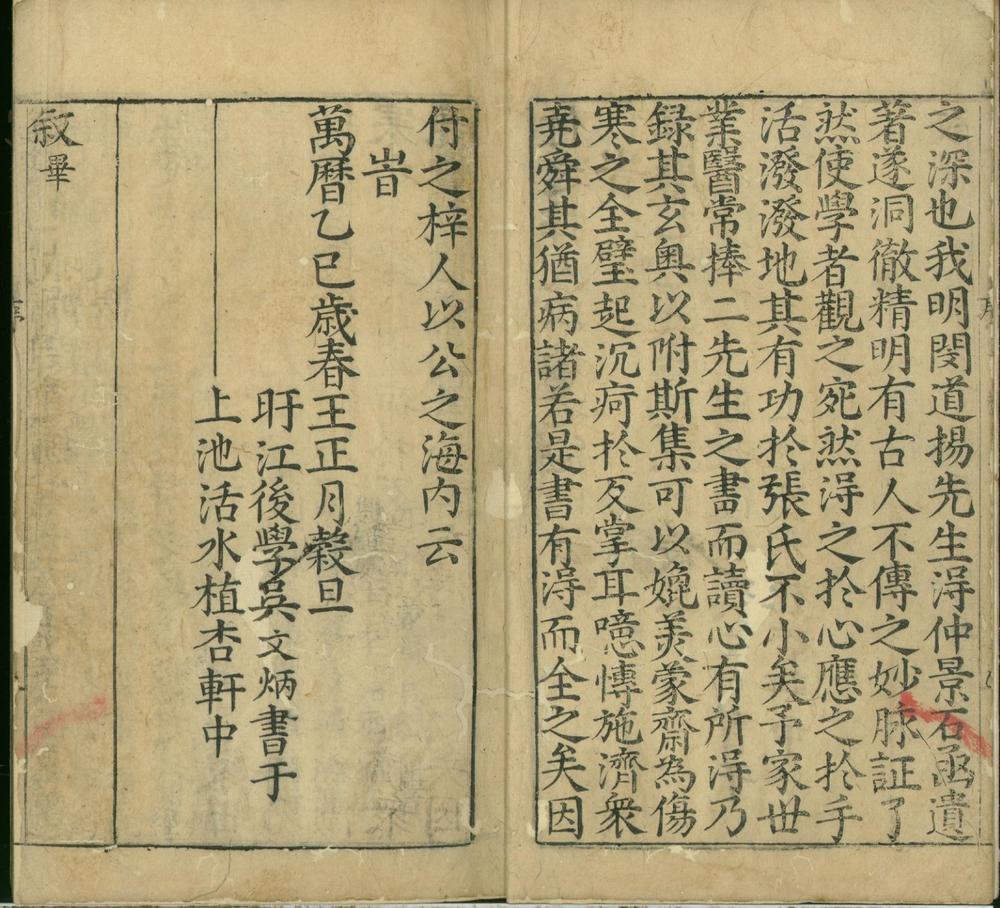 之深也我明閔道揚先生淂仲景石凾遺
著遂洞徹精明有古人不傳之妙脉証了
然使學者觀之宛然淂之扵心應之扵手
活潑潑地其有功扵張氏不小矣予家世
業醫常捧二先生之書而讀心有所淂乃
録其玄奥以附斯集可以媲美蒙齋為傷
寒之全璧起沉疴扵反掌耳噫愽施濟衆
堯舜其猶病諸若是書有淂而全之矣因
付之梓人以公之海内云
旹
萬曆乙巳歲春王正月穀旦
旴江後學吳文炳書于
上池活水植杏軒中
叙畢